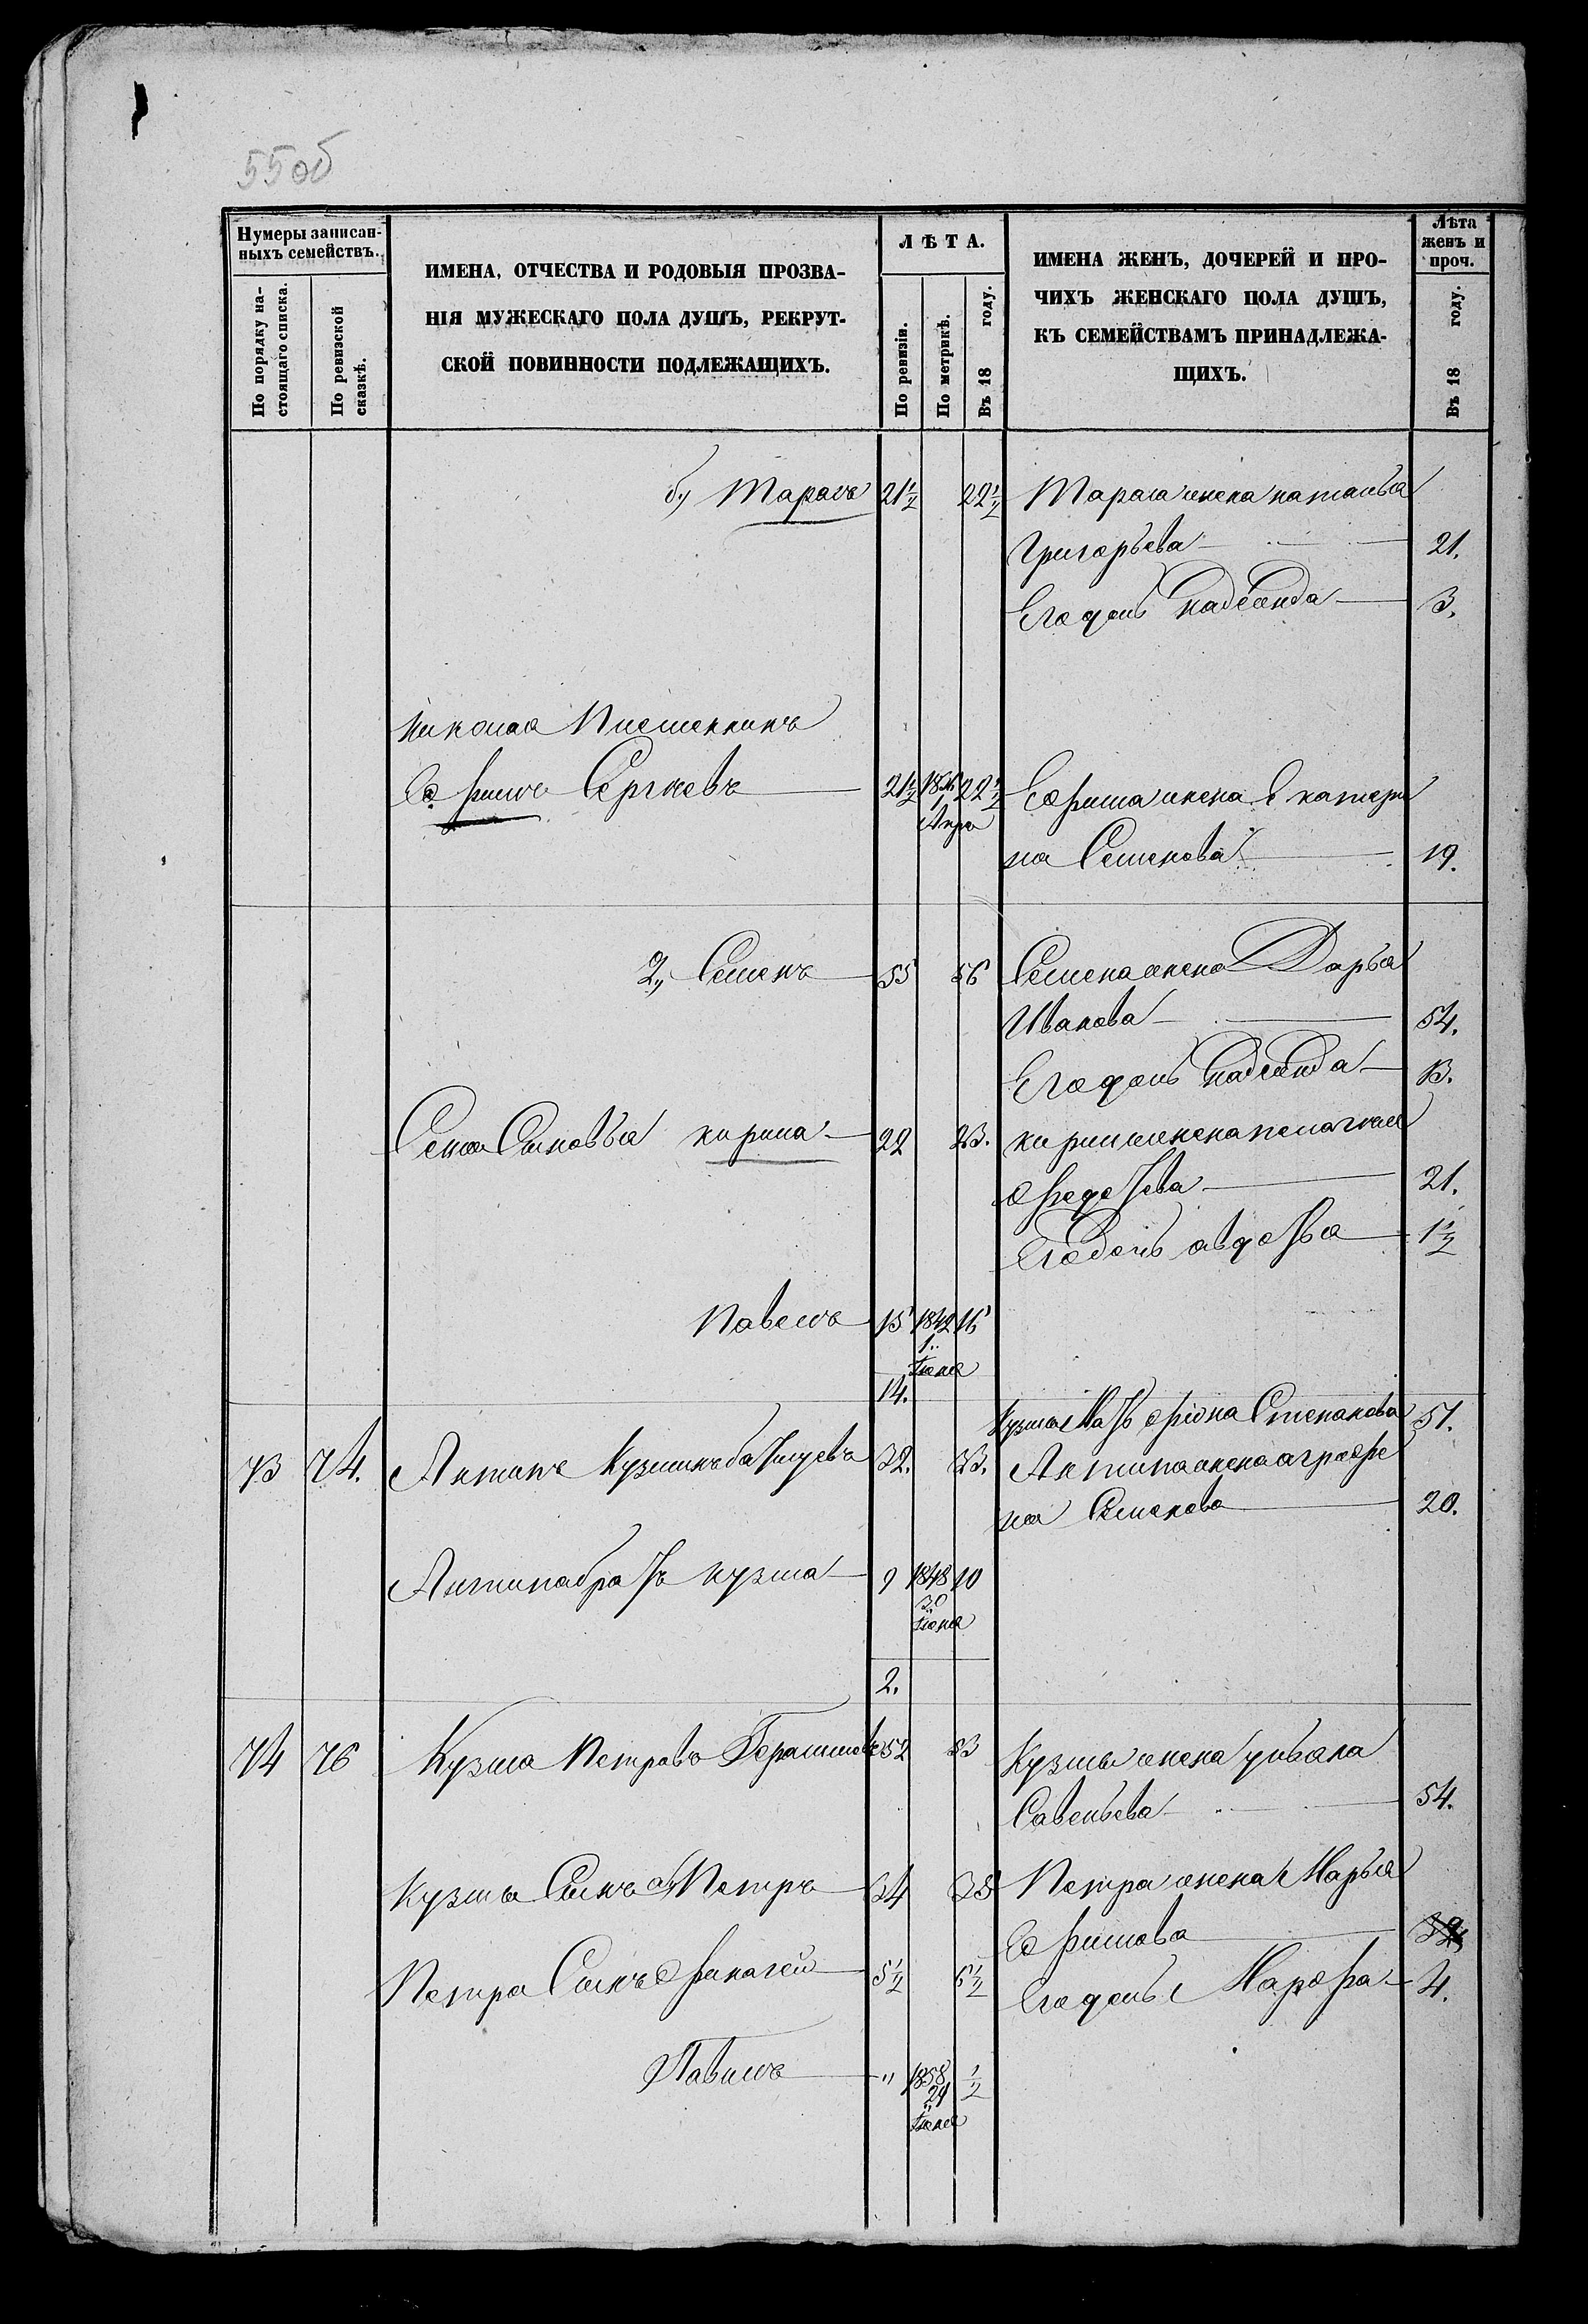 55об
Нумеры записан-
ныхъ семействъ.
По порядку на-
стоящаго списка.
По ревизской
сказкѣ.
ИМЕНА, ОТЧЕСТВА И РОДОВЫЯ ПРОЗВА-
НІЯ МУЖЕСКАГО ПОЛА ДУШЪ, РЕКРУТ-
СКОЙ ПОВИННОСТИ ПОДЛЕЖАЩИХЪ.
ЛѢТА.
По ревизіи.
По метрикѣ.
Въ 18 году.
ИМЕНА ЖЕНЪ, ДОЧЕРЕЙ И ПРО-
ЧИХЪ ЖЕНСКАГО ПОЛА ДУШЪ,
КЪ СЕМЕЙСТВАМЪ ПРИНАДЛЕЖА-
ЩИХЪ.
Лѣта
женъ и
проч.
Въ 18 году.
б,) Тарасъ 21½ 22½ Тараса жена наталья
Григорьева 21.
Его дочь Надежда 3.
Николая Племенникъ
Ефимъ Сергѣевъ 21½ 22½ Ефима жена Екатери
1
Апре
на Семенова 19.
2,, Семенъ 55 56 Семена жена Дарья
Иванова 54.
Его дочь Надежда 13.
Сена Сыновья кирила 22 23. кирилы жена пелагѣя
Федотева 21.
Его дочь авдотья 1½
Павелъ 15 1842 16
1
Іюня
14.
Кузмы Мать фіона Степанова 51.
73 74. Антипъ Кузминъ 32. 33. Антипа жена аграфе
на Семенова 20.
Антипа братъ кузма 9 1848 10
30
Іюня
2.
74 76 Кузма Петровъ Герасимовъ 52 53 Кузмы жена ульяна
Савельева 54.
Кузмы Сынъ а) Петръ 34 35 Петра жена Марья
Ефимова
Петра Сынъ 5½ 6½ Его дочь Марфа 4.
Павилъ " 1858 ½
29
Іюня